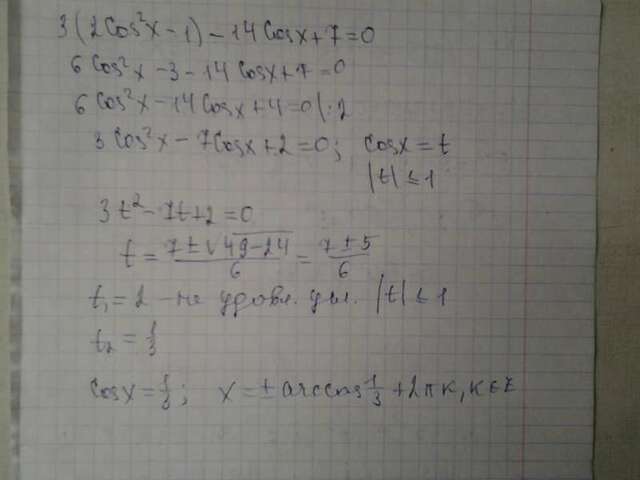 3(2cos²x - 1) - 14cosx + 7 = 0
6cos²x - 3 - 14cosx + 7 = 0
6cos²x - 14cosx + 4 = 0 | : 2
3cos²x - 7cosx + 2 = 0; cosx = t
|t| ≤ 1
3t² - 7t + 2 = 0
t = (7 ± √49 - 24)/6 = (7 ± 5)/6
t₁ = 2 - не удовл. усл. |t| ≤ 1
t₂ = 1/3
cosx = 1/3; x = ± arccos 1/3 + 2πk, k ∈ Z